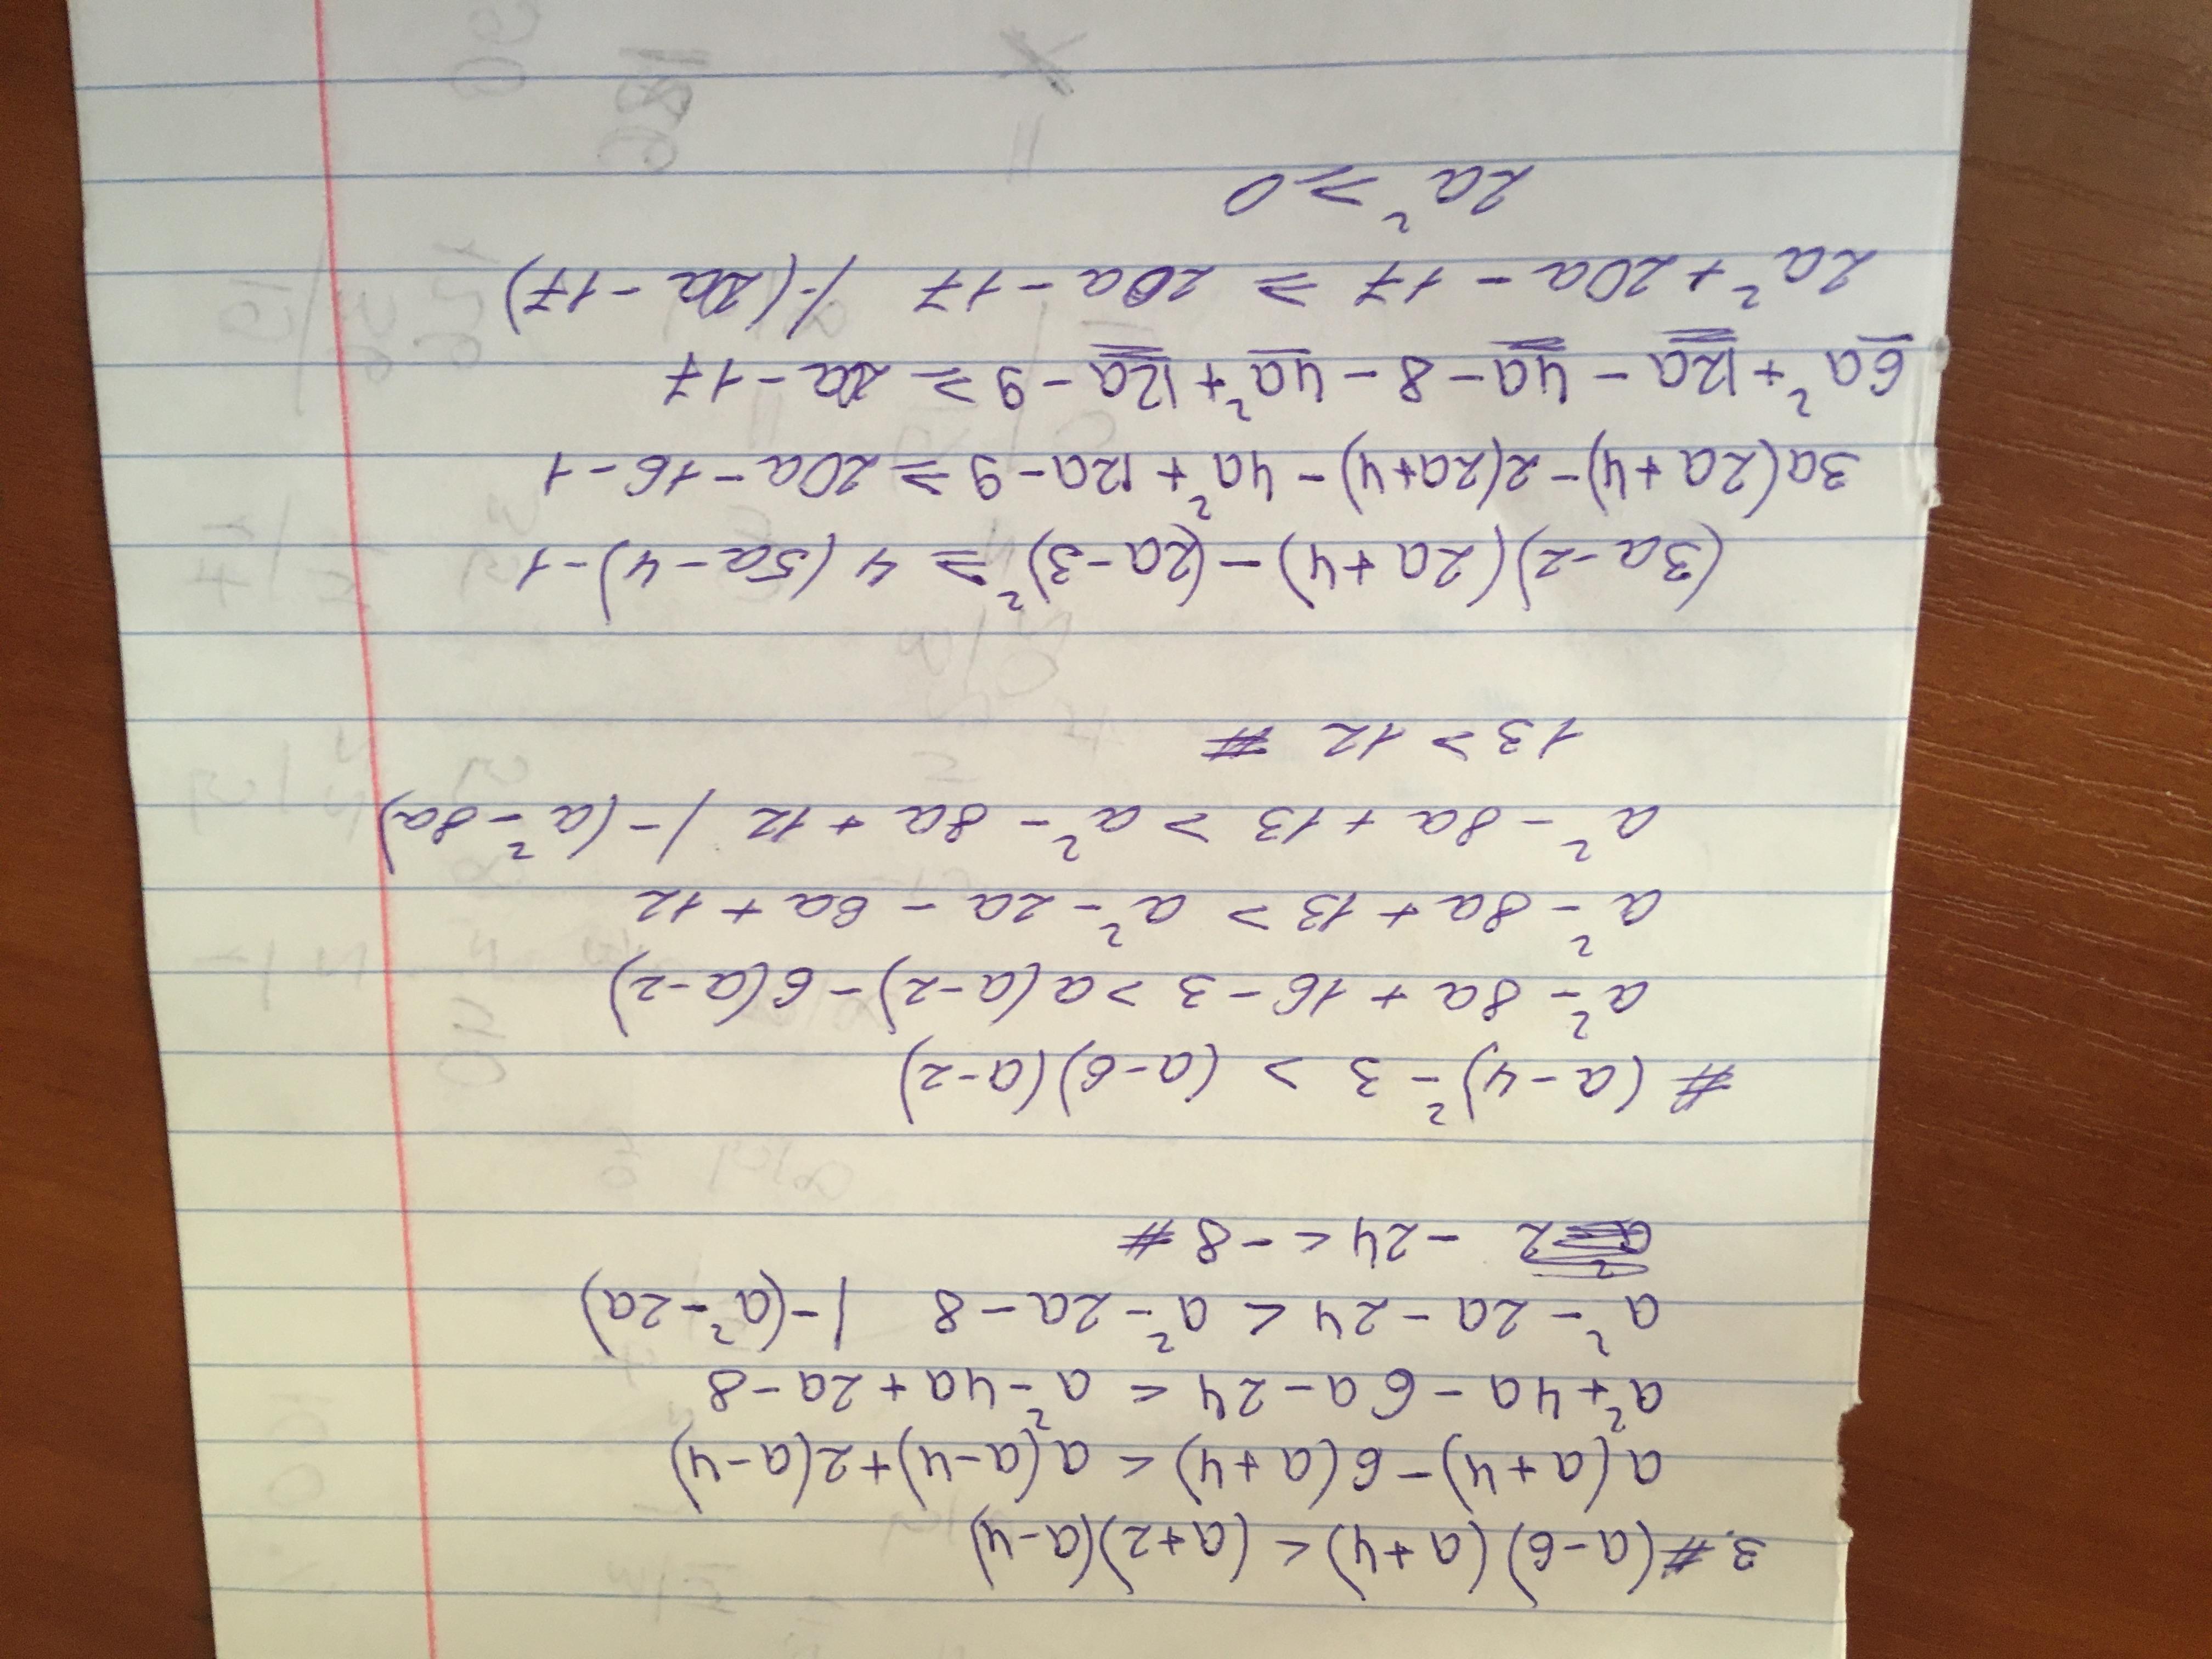 3.#(a-6)(a+4)<(a+2)(a-4)
a(a+4)-6(a+4)<a(a-4)+2(a-4)
a²+4a-6a-24<a²-4a+2a-8
a²-2a-24<a²-2a-8 /-(a²-2a)
-24<-8#
#(a-4)²-3>(a-6)(a-2)
a²-8a+16-3>a(a-2)-6(a-2)
a²-8a+13>a²-2a-6a+12
a²-8a+13>a²-8a+12 /-(a²-8a)
13>12 #
(3a-2)(2a+4)-(2a-3)²⩾4(5a-4)-1
3a(2a+4)-2(2a+4)-4a²+12a-9⩾20a-16-1
6a²+12a-4a-8-4a²+12a-9⩾20a-17
2a²+20a-17⩾20a-17 /-(20a-17)
2a²⩾0